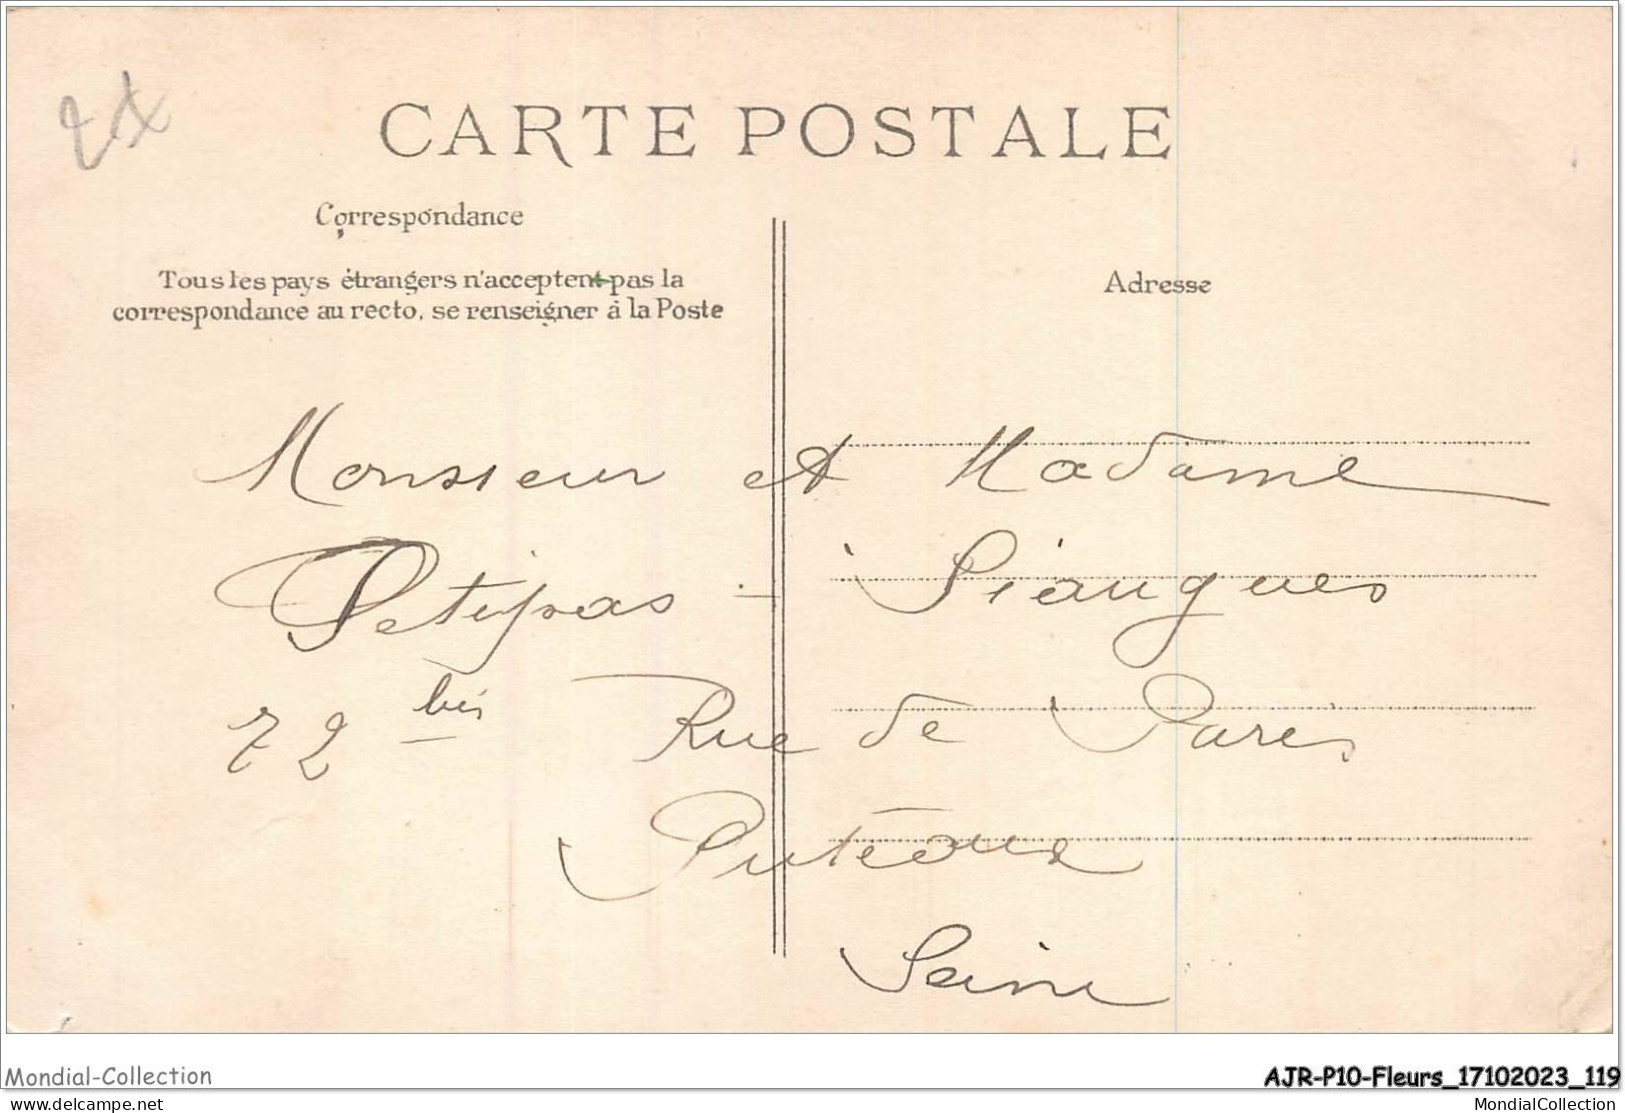 CARTE POSTALE
Correspondance
Tous les pays étrangers n'acceptent pas la
correspondance au recto, se renseigner à la Poste
Adresse
Monsieur et Madame
Petitpas -
72 bis Rue de Paris
Puteaux
Seine
Mondial-Collection
AJR-P10-Fleurs_17102023_119
www.delcampe.net
MondialCollection